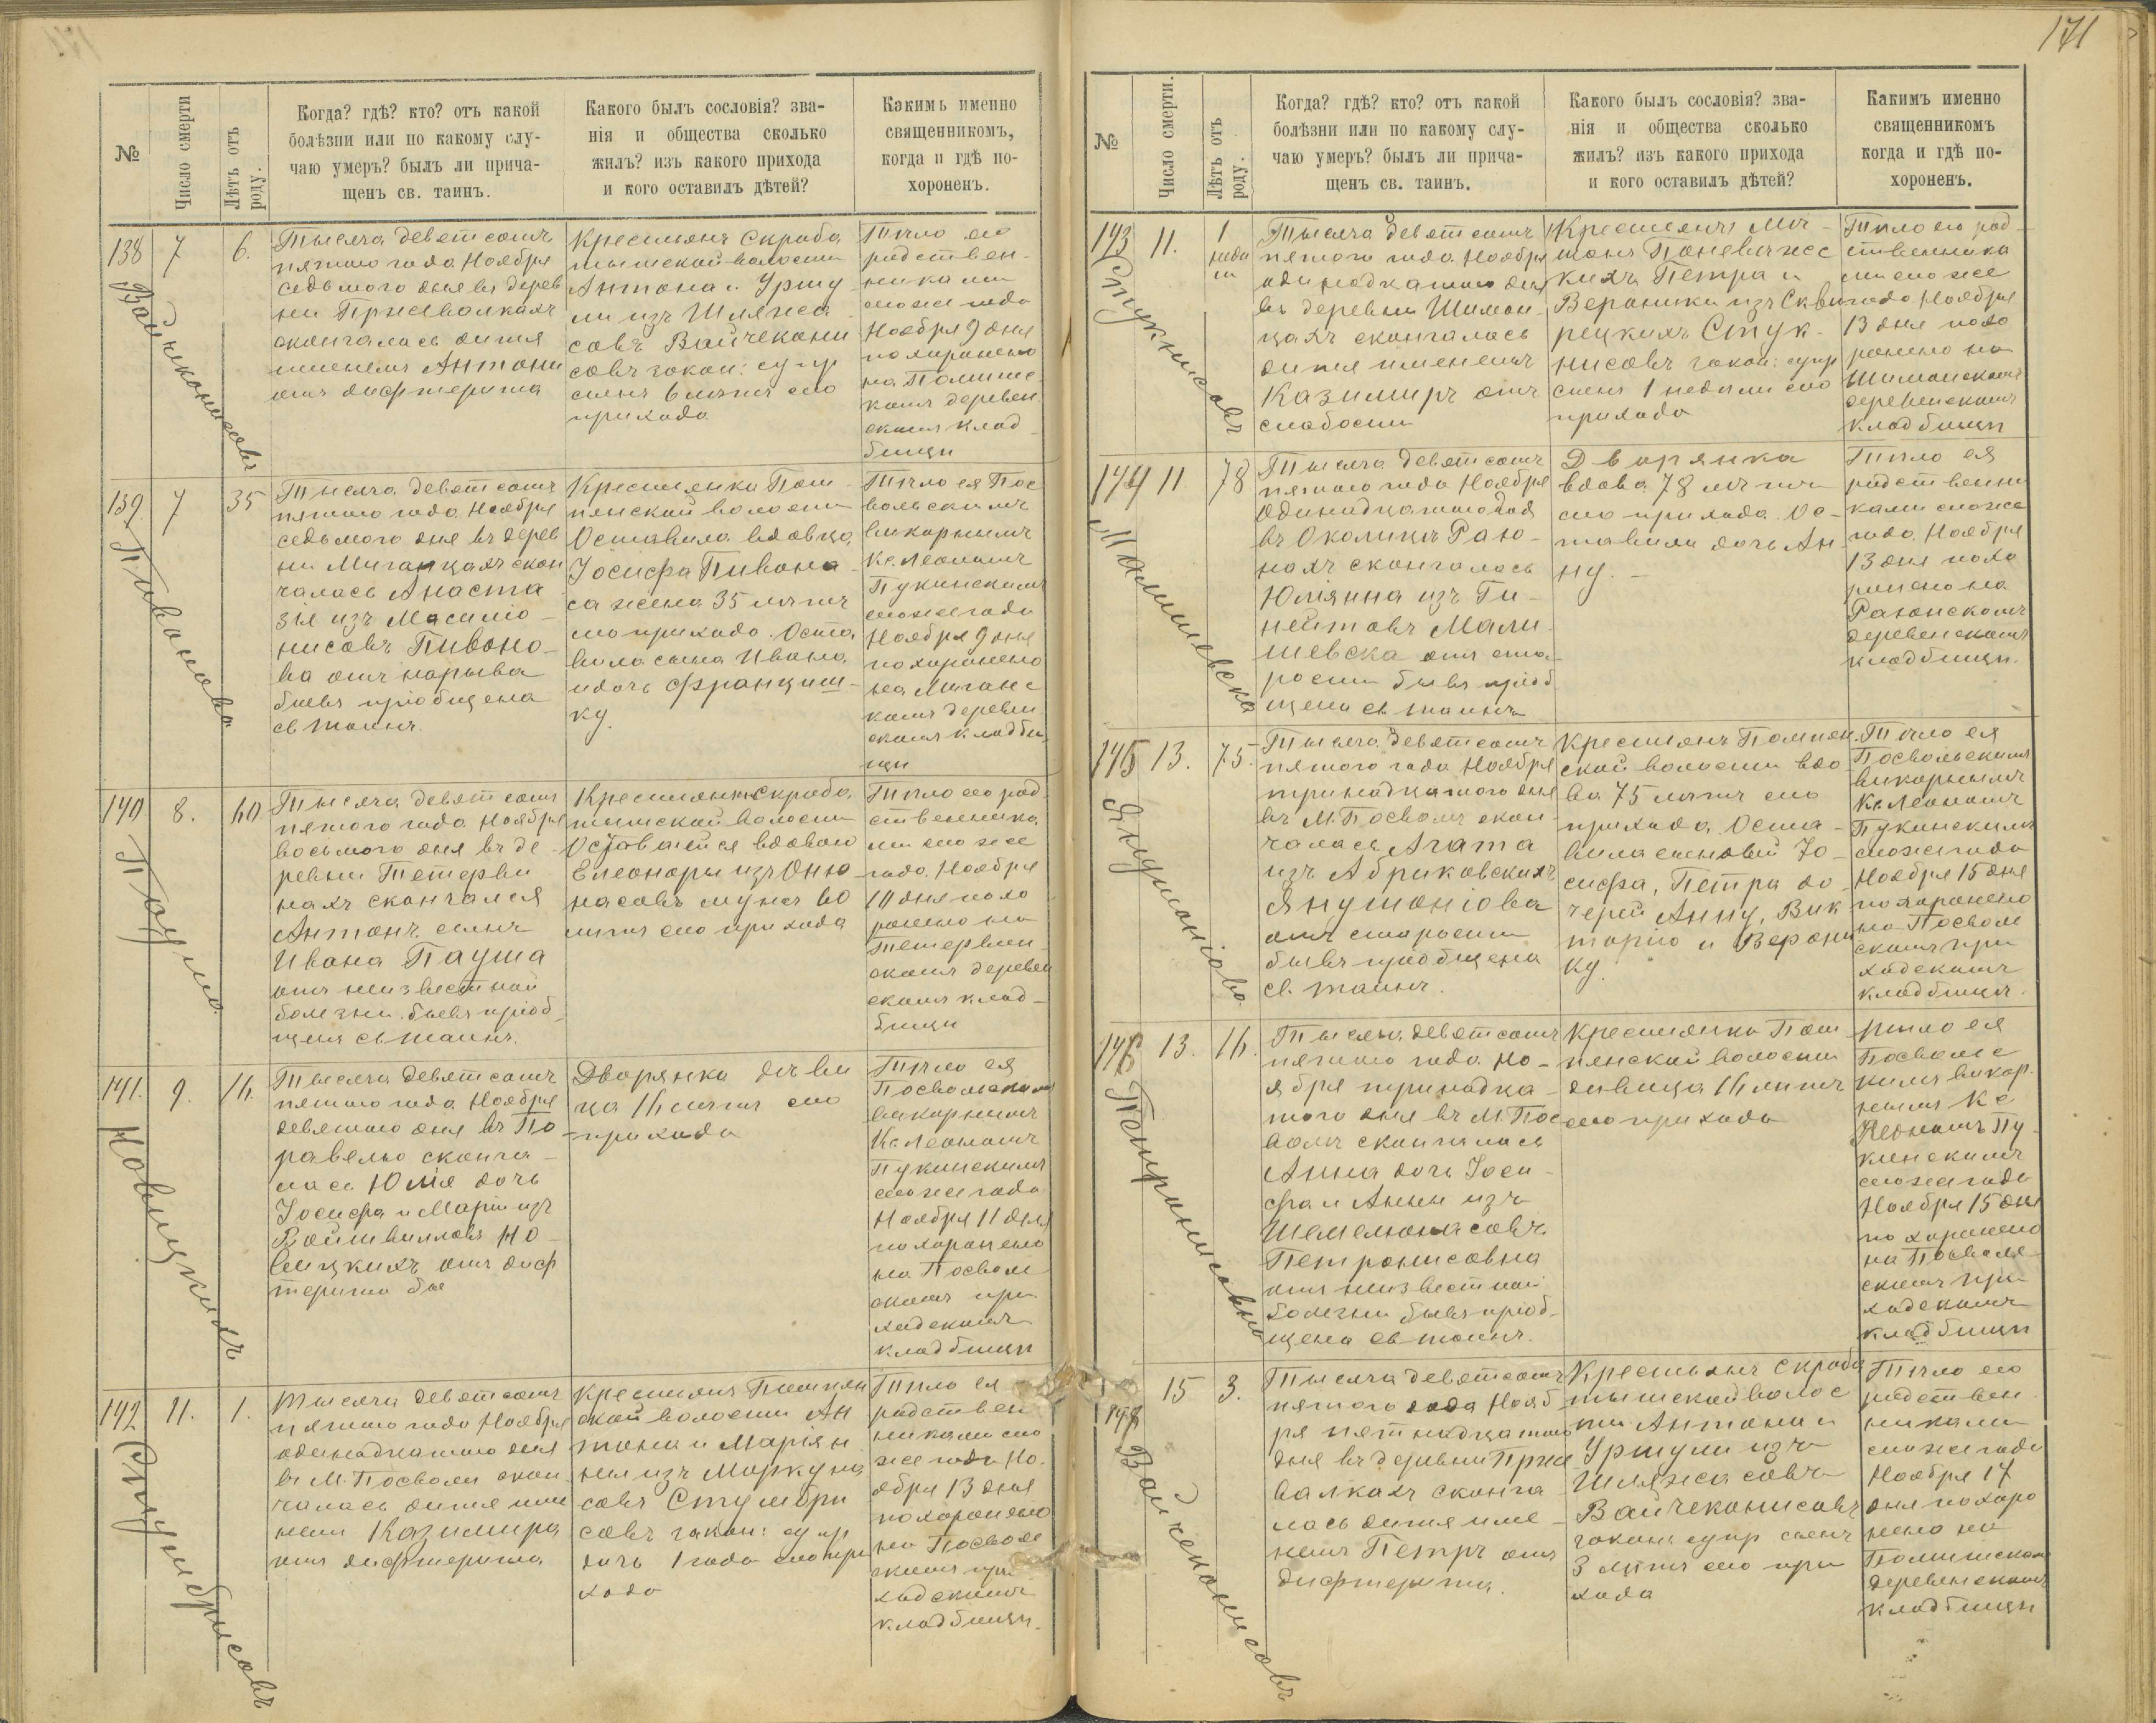 171
№
Число смерти
Лѣтъ отъ роду.
Когда? гдѣ? кто? отъ какой
болѣзни или по какому слу-
чаю умеръ? былъ ли прича-
щенъ св. таинъ.
Какого былъ сословія? зва-
нія и общества сколько
жилъ? изъ какого прихода
и кого оставилъ дѣтей?
Какимъ именно
священникомъ,
когда и гдѣ по-
хороненъ.
138
7
6.
Войчеконисовъ
Тысяча девятсотъ
пятого года Ноября
седьмого дня въ дерев
ни Приеволкахъ
скончалась дитя
именемъ Антони
отъ дифтерита
Крестьянъ Скробо
тышской волости
Антона и Уршу
ли изъ Шляжа
совъ Войчекони
совъ закон: супр
сынъ 6 лѣтъ сего
прихода
Тѣло его
родствен-
никами
сего же года
Ноября 9 дня
похоронено
на Помиш
комъ деревен
скомъ клад-
бищи
139.
7
35
Пивонова
Тысяча девятсотъ
пятого года Ноября
седьмого дня въ дерев
ни Миганцахъ скон
чалась Анаста
зія изъ Масило
нисовъ Пивоно-
ва отъ нарыва
бывъ пріобщена
св таинъ.
Крестьянка Пом-
пянской волости
Оставила вдовца
Іосифа Пивона
са жена 35 лѣтъ
сего прихода. Оста
вила сына Ивана
и дочь Францишку
ку.
Тѣло ея Пос
вольскимъ
викарнымъ
Кс. Леономъ
Пукинскимъ
сего же года
Ноября 9 дня
похоронено
на Миганс
комъ деревен
скомъ кладби
щи
140
8.
60
Паума
Тысяча девятсотъ
пятого года Ноября
восьмого дня въ де-
ревни Тетерви
нахъ скончался
Антонъ сынъ
Ивана Паума
отъ неизвестной
болезни бывъ пріоб-
щенъ св таинъ.
Крестьянинъ Скробо
тышской волости
Оставшейся вдовою
Елеоноры изъ Оню
насовъ мужъ 60
лѣтъ сего прихода
Тѣло его род
ственника
ми сего же
года Ноября
10 дня похо
ронено на
Тетервин
скомъ деревен
скомъ клад-
бищи
141.
9.
16.
Новицкихъ
Тысяча девятсотъ
пятого года Ноября
девятого дня въ По
равелю сконча-
лась Юлія дочь
Іосифа и Маріи изъ
Войшвилловъ Но-
вицкихъ отъ диф
терита бы
Дворянка дѣви
ца 16 лѣтъ сего
прихода
Тѣло ея
Посвольскимъ
викарнымъ
Кс Леономъ
Пукинскимъ
сего же года
Ноября 11 дня
похоронено
на Посволь
скомъ при
ходскомъ
кладбищи
142
11.
1.
Стумбрисовъ
Тысяча девятсотъ
пятого года Ноября
одинадцатого дня
въ М. Посволи скон
чалась дитя име
немъ Казимира
отъ дифтерита
Крестьянъ Помпян
ской волости Ан
тона и Маріян
ны изъ Моркуна
совъ Стумбри
совъ закон: супр
дочь 1 года сего при
хода
Тѣло ея
родствен
никами сего
же года Но-
ября 13 дня
похоронено
на Посволь
скомъ при
ходскомъ
кладбищи.
№
Число смерти.
Лѣтъ отъ роду.
Когда? гдѣ? кто? отъ какой
болѣзни или по какому слу-
чаю умеръ? былъ ли прича-
щенъ св. таинъ.
Какого былъ сословія? зва-
нія и общества сколько
жилъ? изъ какого прихода
и кого оставилъ дѣтей?
Какимъ именно
священникомъ
когда и гдѣ по-
хороненъ.
143
11.
1
неде
ли
Стукнисовъ
Тысяча девятсотъ
пятого года Ноября
одинадцатого дня
въ деревни Шимон
цахъ скончалась
дитя именемъ
Казимиръ отъ
слабости
Крестьянъ Мѣ-
щанъ Поневѣжс
кихъ Петра и
Вероники изъ Скви
рецкихъ Стук-
нисовъ закон: супр
сынъ 1 недели сего
прихода
Тѣло его род-
ственника
ми сего же
года Ноября
13 дня похо
ронено на
Шимонскомъ
деревенскомъ
кладбищи
144
11
78
Малишевска
Тысяча девятсотъ
пятого года Ноября
одинадцатого дня
въ Околицѣ Раю-
нахъ скончалась
Юліянна изъ Ги-
нейтовъ Мали
шевска отъ ста-
рости бывъ пріоб
щена св таинъ
Дворянка
вдова 78 лѣтъ
сего прихода. Ос-
тавила дочь Ан-
ну. -
Тѣло ея
родственни
ками сего же
года Ноября
13 дня похо
ронено на
Раюнскомъ
деревенскомъ
кладбищи.
145
13.
75.
Янушоніова
Тысяча девятсотъ
пятого года Ноября
тринадцатого дня
въ М. Посволѣ скон-
чалась Агата
изъ Абриковскихъ
Янушоніова
отъ старости
бывъ пріобщена
св. таинъ.
Крестьянъ Помпян
ской волости вдо
ва 75 лѣтъ сего
прихода. Оста-
вила сыновей Іо-
сифа, Петра до
черей Анну, Вик
торію и Верони
ку.
Тѣло ея
Посвольскимъ
викарнымъ
Кс. Леономъ
Пукинскимъ
сего же года
Ноября 15 дня
похоронено
на Посволь
скомъ при
ходскомъ
кладбищи.
146
13.
16.
Петронисовна
Тысяча девятсотъ
пятого года Но-
ября тринадца-
того дня въ М. Пос
волѣ скончалась
Анна дочь Іоси-
фа и Анны изъ
Шемелюнасовъ
Петронисовна
отъ неизвестной
болезни бывъ пріоб-
щена св таинъ.
Крестьянка Пом
пянской волости
дѣвица 16 лѣтъ
сего прихода
Тѣло ея
Посвольс
кимъ викар
нымъ Кс
Леономъ Пу
кинскимъ
сего же года
Ноября 15 дня
похоронено
на Посволь
скомъ при-
ходскомъ
кладбищи
147
15
3.
Войчеконисовъ
Тысяча девятсотъ
пятого года Нояб
ря пятнадцатого
дня въ деревни Прие
валкахъ сконча
лась дитя име-
немъ Петръ отъ
дифтерита.
Крестьянъ Скробо
тышской волос
ти Антона и
Уршули изъ
Шляжасовъ
Войчеконисовъ
законъ супр сынъ
3 лѣтъ сего при
хода
Тѣло его
родствен
никами
сего же года
Ноября 17
дня похоро
нено на
Помишском
деревенскомъ
кладбищи